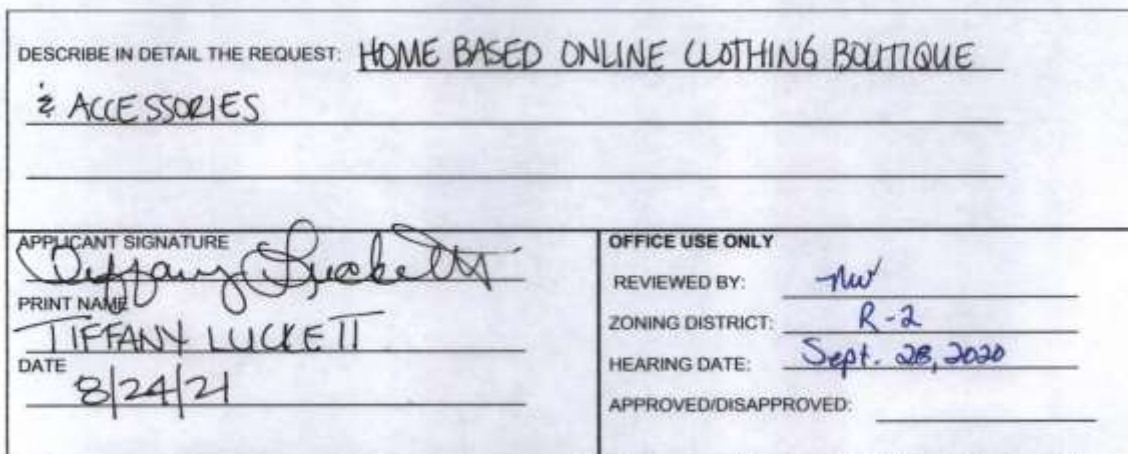 DESCRIBE IN DETAIL THE REQUEST: HOME BASED ONLINE CLOTHING BOUTIQUE
& ACCESSORIES
APPLICANT SIGNATURE
Tiffany Luckett
PRINT NAME
TIFFANY LUCKETT
DATE
8/24/21
OFFICE USE ONLY
REVIEWED BY: nw
ZONING DISTRICT: R-2
HEARING DATE: Sept. 28, 2020
APPROVED/DISAPPROVED: